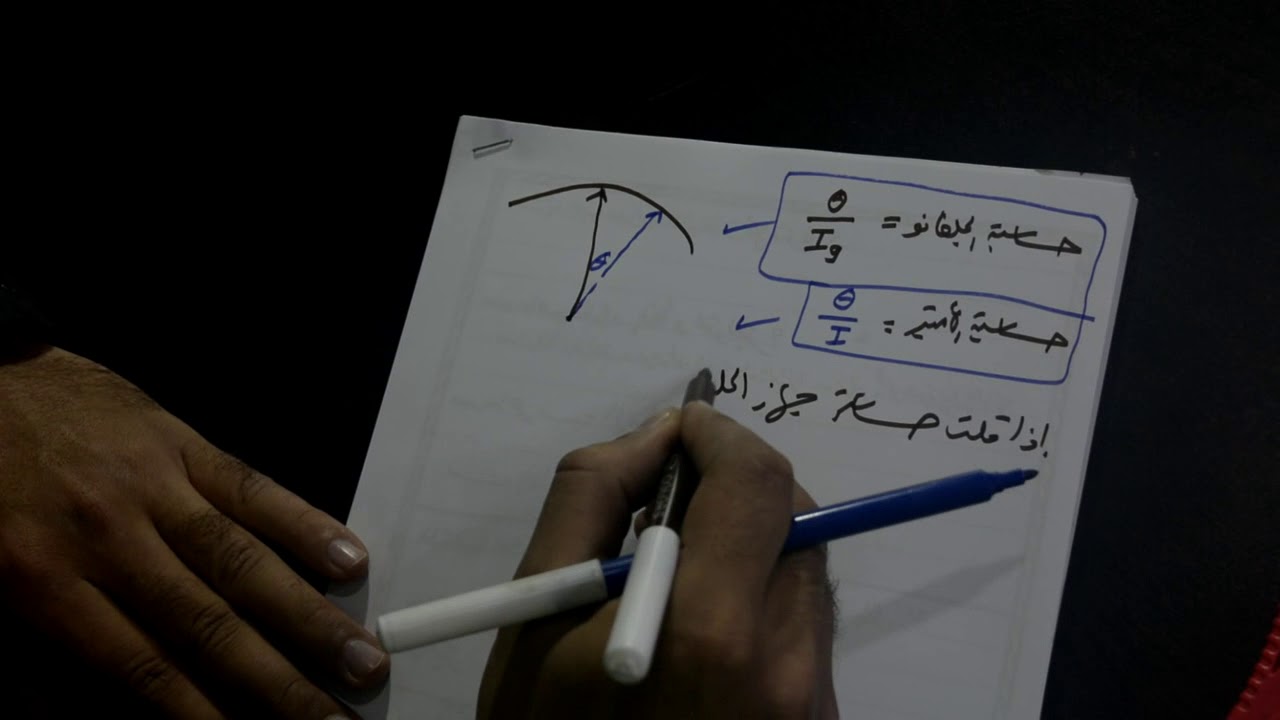 حساسية الجلفانو = θ / Ig
حساسية الأمتير = θ / I
θ
إذا قلت حساسية جهاز الجلـ